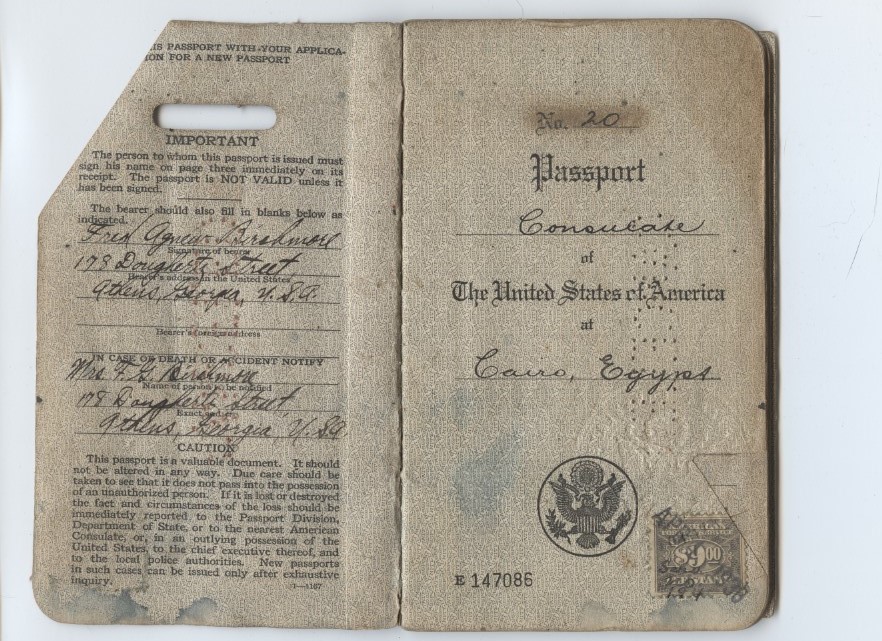 IS PASSPORT WITH YOUR APPLICA-
ION FOR A NEW PASSPORT
IMPORTANT
The person to whom this passport is issued must
sign his name on page three immediately on its
receipt. The passport is NOT VALID unless it
has been signed.
The bearer should also fill in blanks below as
indicated.
Fred Agnew Birchmore
Signature of bearer
178 Dougherty Street
Bearer's address in the United States
Athens, Georgia, U.S.A.
Bearer's foreign address
IN CASE OF DEATH OR ACCIDENT NOTIFY
Mrs F. G. Birchmore
Name of person to be notified
178 Dougherty Street
Exact address
Athens, Georgia, U.S.A.
CAUTION
This passport is a valuable document. It should
not be altered in any way. Due care should be
taken to see that it does not pass into the possession
of an unauthorized person. If it is lost or destroyed
the fact and circumstances of the loss should be
immediately reported to the Passport Division,
Department of State, or to the nearest American
Consulate, or, in an outlying possession of the
United States, to the chief executive thereof, and
to the local police authorities. New passports
in such cases can be issued only after exhaustive
inquiry.
1—1167
No. 20
Passport
Consulate
of
The United States of America
at
Cairo, Egypt
E 147086
$9.00